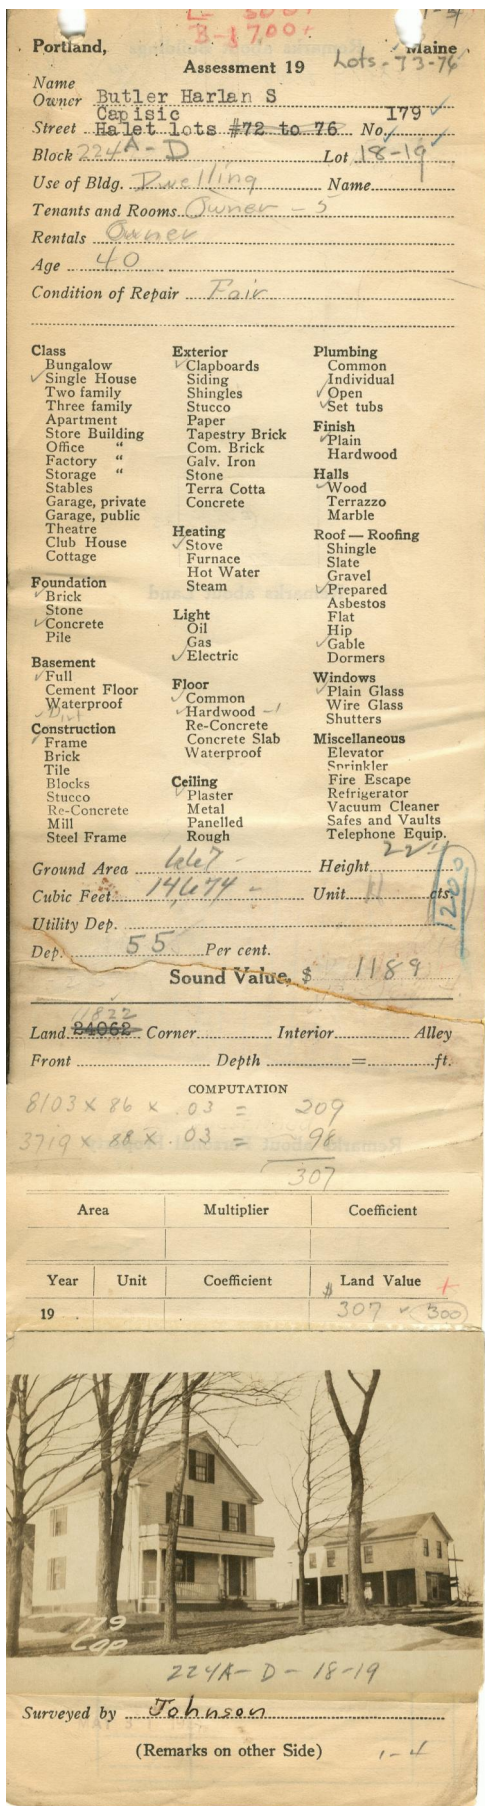 B-1700+
Portland, Maine
Assessment 19 Lots-73-76
Name
Owner Butler Harlan S
Capisic 179
Street Halet lots #72 to 76 No.
Block 224A-D Lot 18-19
Use of Bldg. Dwelling Name
Tenants and Rooms Owner - 5
Rentals Owner
Age 40
Condition of Repair Fair
Class
Bungalow
Single House
Two family
Three family
Apartment
Store Building
Office "
Factory "
Storage "
Stables
Garage, private
Garage, public
Theatre
Club House
Cottage
Foundation
Brick
Stone
Concrete
Pile
Basement
Full
Cement Floor
Waterproof
Dirt
Construction
Frame
Brick
Tile
Blocks
Stucco
Re-Concrete
Mill
Steel Frame
Exterior
Clapboards
Siding
Shingles
Stucco
Paper
Tapestry Brick
Com. Brick
Galv. Iron
Stone
Terra Cotta
Concrete
Heating
Stove
Furnace
Hot Water
Steam
Light
Oil
Gas
Electric
Floor
Common
Hardwood - 1
Re-Concrete
Concrete Slab
Waterproof
Ceiling
Plaster
Metal
Panelled
Rough
Plumbing
Common
Individual
Open
Set tubs
Finish
Plain
Hardwood
Halls
Wood
Terrazzo
Marble
Roof — Roofing
Shingle
Slate
Gravel
Prepared
Asbestos
Flat
Hip
Gable
Dormers
Windows
Plain Glass
Wire Glass
Shutters
Miscellaneous
Elevator
Sprinkler
Fire Escape
Refrigerator
Vacuum Cleaner
Safes and Vaults
Telephone Equip.
Ground Area 667 - Height 22
Cubic Feet 14,674 - Unit 11 cts.
1200
Utility Dep.
Dep. 55 Per cent.
Sound Value, $ 1189
11822
Land 24062 Corner Interior Alley
Front Depth = ft.
COMPUTATION
8103 x 86 x .03 = 209
3719 x 88 x .03 = 98
307
Area Multiplier Coefficient
Year Unit Coefficient Land Value +
19 $ 307 300
179
Cap
224A-D-18-19
Surveyed by Johnson
(Remarks on other Side) 1-4